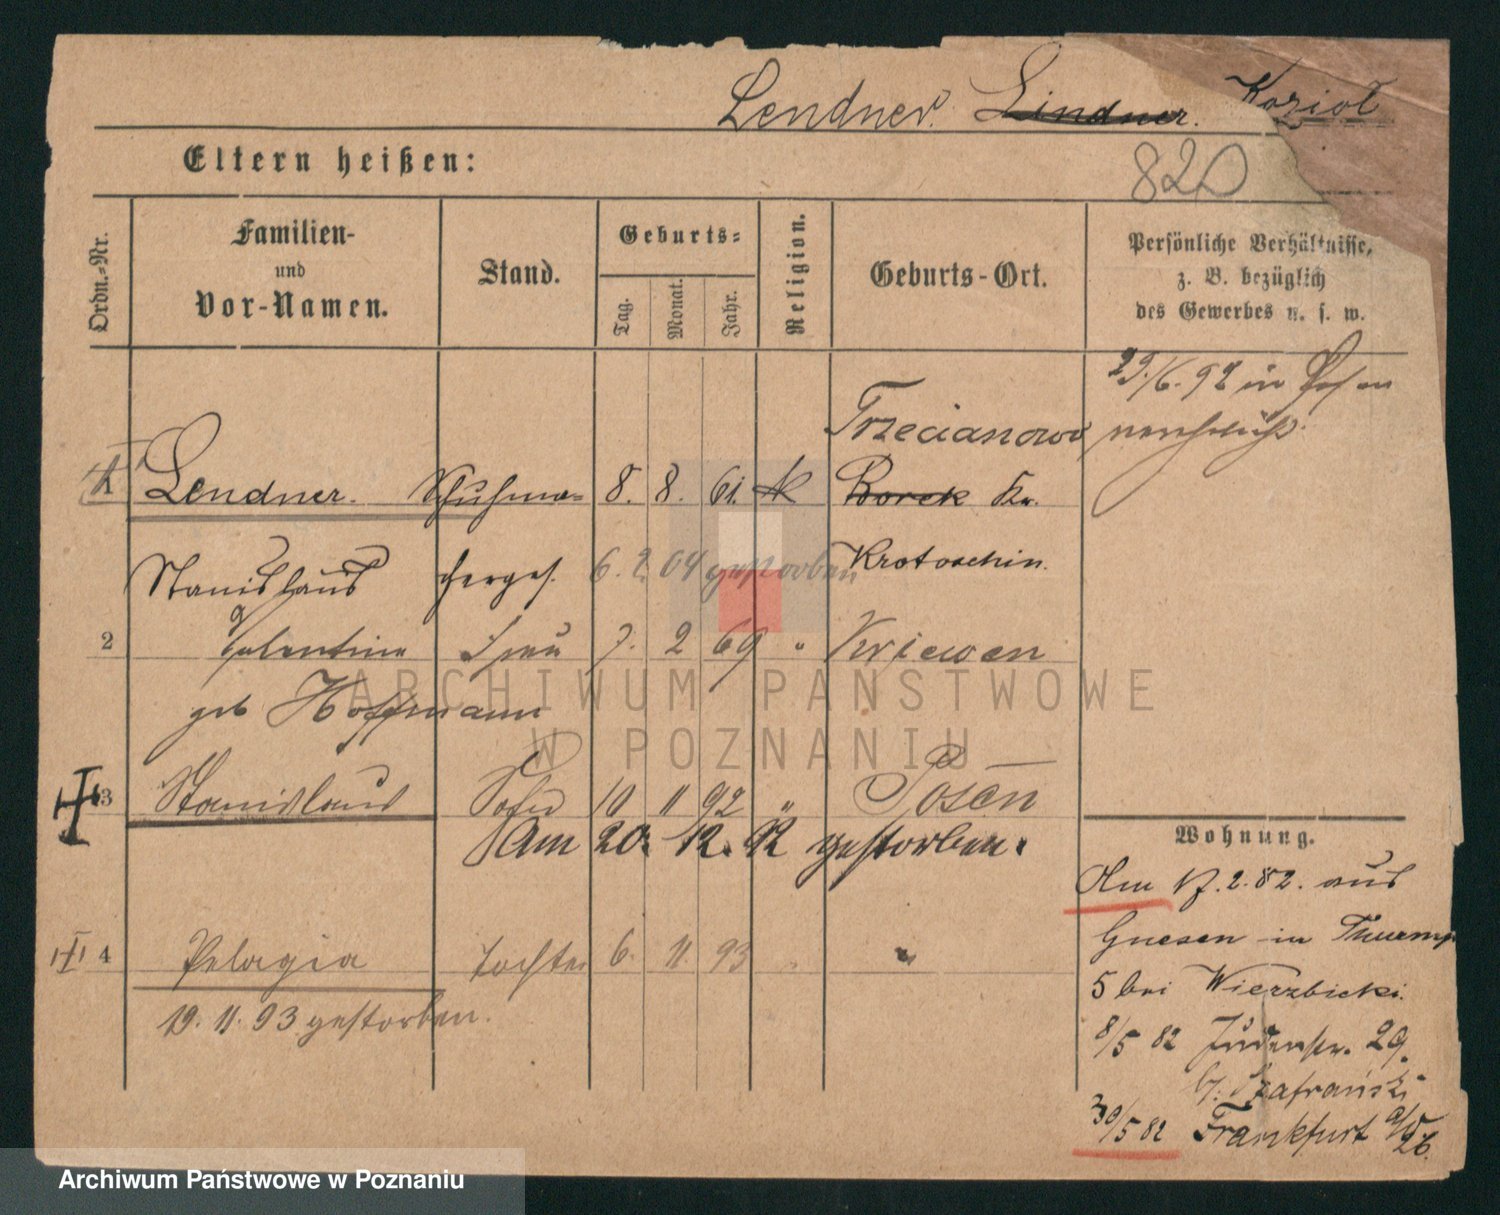 Lendner. Lindner. Koziol
Eltern heißen:
820
Ordn.-Nr.
Familien-
und
Vor-Namen.
Stand.
Geburts-
Tag.
Monat.
Jahr.
Religion.
Geburts-Ort.
Persönliche Verhältnisse,
z. B. bezüglich
des Gewerbes u. s. w.
29./6. 92 in Posen
verehelicht.
Trzecianowo
1 Lendner. Schuhma= 8. 8. 61. K Borek Kr.
Stanislaus cherges. 6. 2. 04 gestorben Krotoschin.
2 Valentine Frau 7. 2 69 " Kriewen
geb Hoffmann
3 Stanislaus Sohn 10 11 92 " Posen
Am 20. 12. 92 gestorben.
4 Pelagia Tochter 6. 11 93 " "
19. 11. 93 gestorben.
Wohnung.
Am 17. 2. 82. aus
Gnesen in
5 bei Wierzbicki.
8/5 82 Judenstr. 29.
b/. Szafrański
30/5 82 Frankfurt a/O
26.
ARCHIWUM PAŃSTWOWE
W POZNANIU
Archiwum Państwowe w Poznaniu